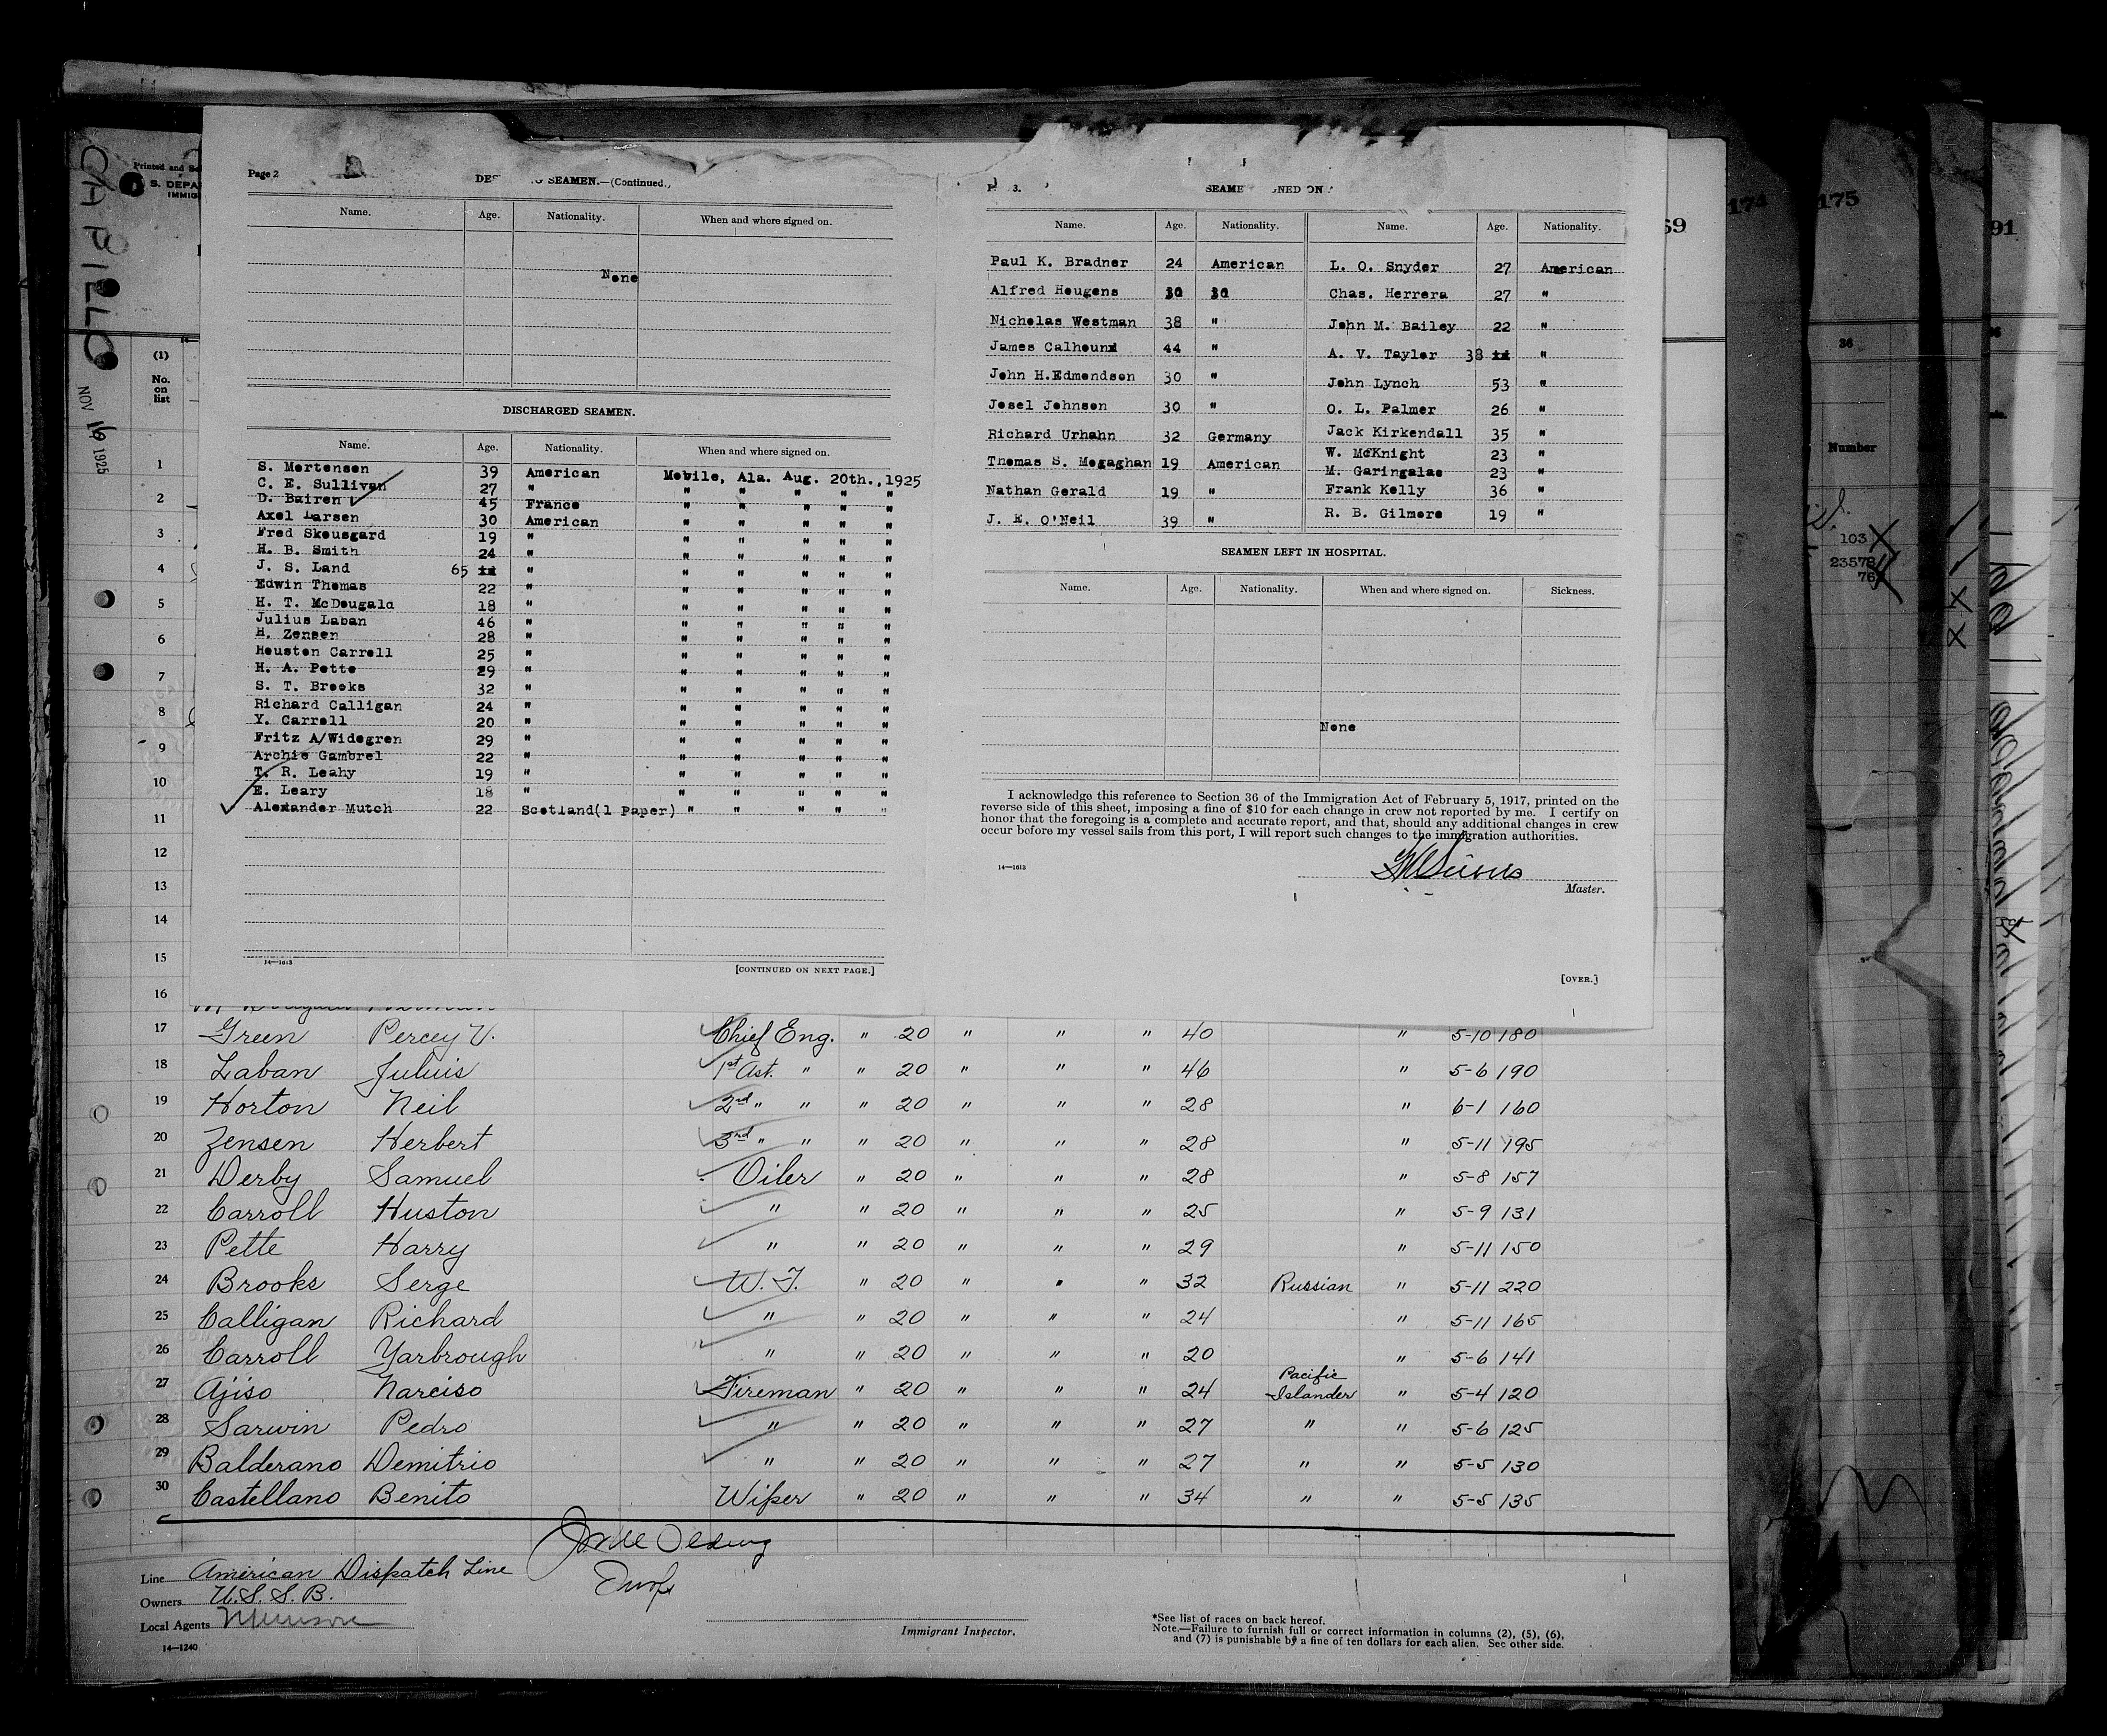 CAPILLO
NOV 16 1925
Printed and
S. DEPA
IMMIG
Page 2
SEAMEN.—(Continued.)
Name. Age. Nationality. When and where signed on.
None
DISCHARGED SEAMEN.
Name. Age. Nationality. When and where signed on.
S. Mortensen 39 American Mobile, Ala. Aug. 20th.,1925
C. E. Sullivan 27 " " " " " "
D. Bairen 45 France " " " " "
Axel Larsen 30 American " " " " "
Fred Skousgard 19 " " " " " "
H. B. Smith 24 " " " " " "
J. S. Land 65 " " " " " "
Edwin Thomas 22 " " " " " "
H. T. McDougald 18 " " " " " "
Julius Laban 46 " " " " " "
H. Zensen 28 " " " " " "
Houston Carroll 25 " " " " " "
H. A. Pette 29 " " " " " "
S. T. Brooks 32 " " " " " "
Richard Calligan 24 " " " " " "
Y. Carroll 20 " " " " " "
Fritz A/Widegren 29 " " " " " "
Archie Gambrel 22 " " " " " "
T. R. Leahy 19 " " " " " "
E. Leary 18 " " " " " "
Alexander Mutch 22 Scotland(1 Paper) " " " " "
14—1613
[CONTINUED ON NEXT PAGE.]
3.
SEAME NED ON
Name. Age. Nationality. Name. Age. Nationality.
Paul K. Bradner 24 American L. O. Snyder 27 American
Alfred Hougens 30 30 Chas. Herrera 27 "
Nicholas Westman 38 " John M. Bailey 22 "
James Calhoun 44 " A. V. Taylor 38 "
John H.Edmondson 30 " John Lynch 53 "
Josel Johnson 30 " O. L. Palmer 26 "
Richard Urhahn 32 Germany Jack Kirkendall 35 "
Thomas S. Megaghan 19 American W. McKnight 23 "
M. Garingalao 23 "
Nathan Gerald 19 " Frank Kelly 36 "
J. E. O'Neil 39 " R. B. Gilmore 19 "
SEAMEN LEFT IN HOSPITAL.
Name. Age. Nationality. When and where signed on. Sickness.
None
I acknowledge this reference to Section 36 of the Immigration Act of February 5, 1917, printed on the
reverse side of this sheet, imposing a fine of $10 for each change in crew not reported by me. I certify on
honor that the foregoing is a complete and accurate report, and that, should any additional changes in crew
occur before my vessel sails from this port, I will report such changes to the immigration authorities.
14—1613
Master.
[OVER.]
(1)
No.
on
list
1
2
3
4
5
6
7
8
9
10
11
12
13
14
15
16
17 Green Percey V. Chief Eng. " 20 " " " 40 " 5-10 180
18 Laban Julius 1st Ast. " " 20 " " " 46 " 5-6 190
19 Horton Neil 2nd " " " 20 " " " 28 " 6-1 160
20 Zensen Herbert 3rd " " " 20 " " " 28 " 5-11 195
21 Derby Samuel Oiler " 20 " " " 28 " 5-8 157
22 Carroll Huston " " 20 " " " 25 " 5-9 131
23 Pette Harry " " 20 " " " 29 " 5-11 150
24 Brooks Serge W. T. " 20 " " " 32 Russian " 5-11 220
25 Calligan Richard " " 20 " " " 24 " 5-11 165
26 Carroll Yarbrough " " 20 " " " 20 " 5-6 141
27 Ajiso Narciso Fireman " 20 " " " 24 Pacific Islander " 5-4 120
28 Sarwin Pedro " " 20 " " " 27 " " 5-6 125
29 Balderano Demitrio " " 20 " " " 27 " " 5-5 130
30 Castellano Benito Wiper " 20 " " " 34 " " 5-5 135
Line American Dispatch Line
Owners U.S.S.B.
Local Agents Munson
14—1240
Immigrant Inspector.
*See list of races on back hereof.
Note.—Failure to furnish full or correct information in columns (2), (5), (6),
and (7) is punishable by a fine of ten dollars for each alien. See other side.
69
174
175
91
36
Number
103
23578
76